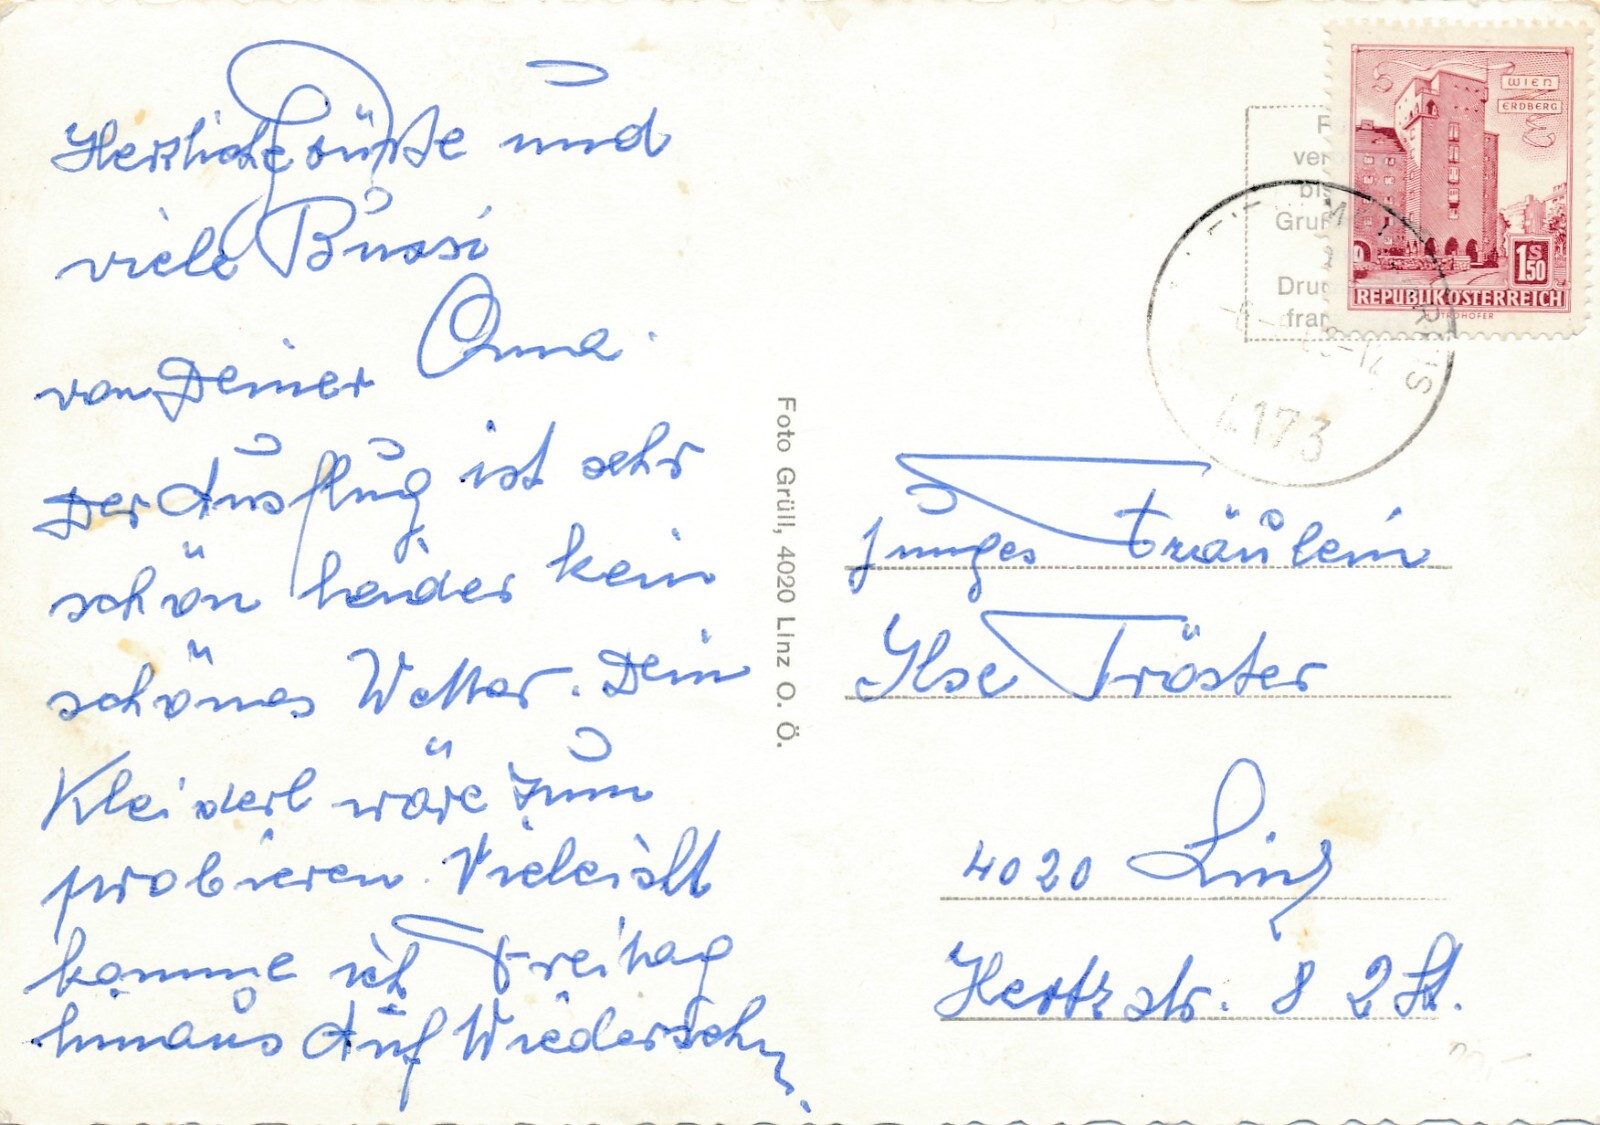 Herzliche Grüße und
viele Bussi
von Deiner Oma.
Der Ausflug ist sehr
schön leider kein
schönes Wetter. Dein
Kleiderl wäre zum
probieren. Vieleicht
komme ich Freitag
hinaus Auf Wiedersehn
Foto Grüll, 4020 Linz O. Ö.
WIEN
ERDBERG
1S50
REPUBLIK ÖSTERREICH
4173
junges Fräulein
Ilse Tröster
4020 Linz
Hertzstr. 8 2 St.